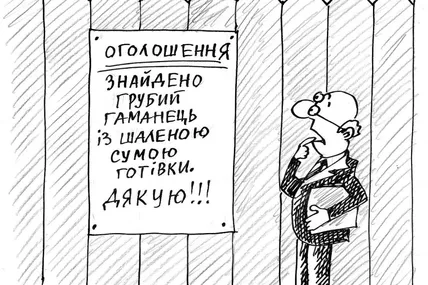 ОГОЛОШЕННЯ
ЗНАЙДЕНО
ГРУБИЙ
ГАМАНЕЦЬ
ІЗ ШАЛЕНОЮ
СУМОЮ
ГОТІВКИ.
ДЯКУЮ!!!